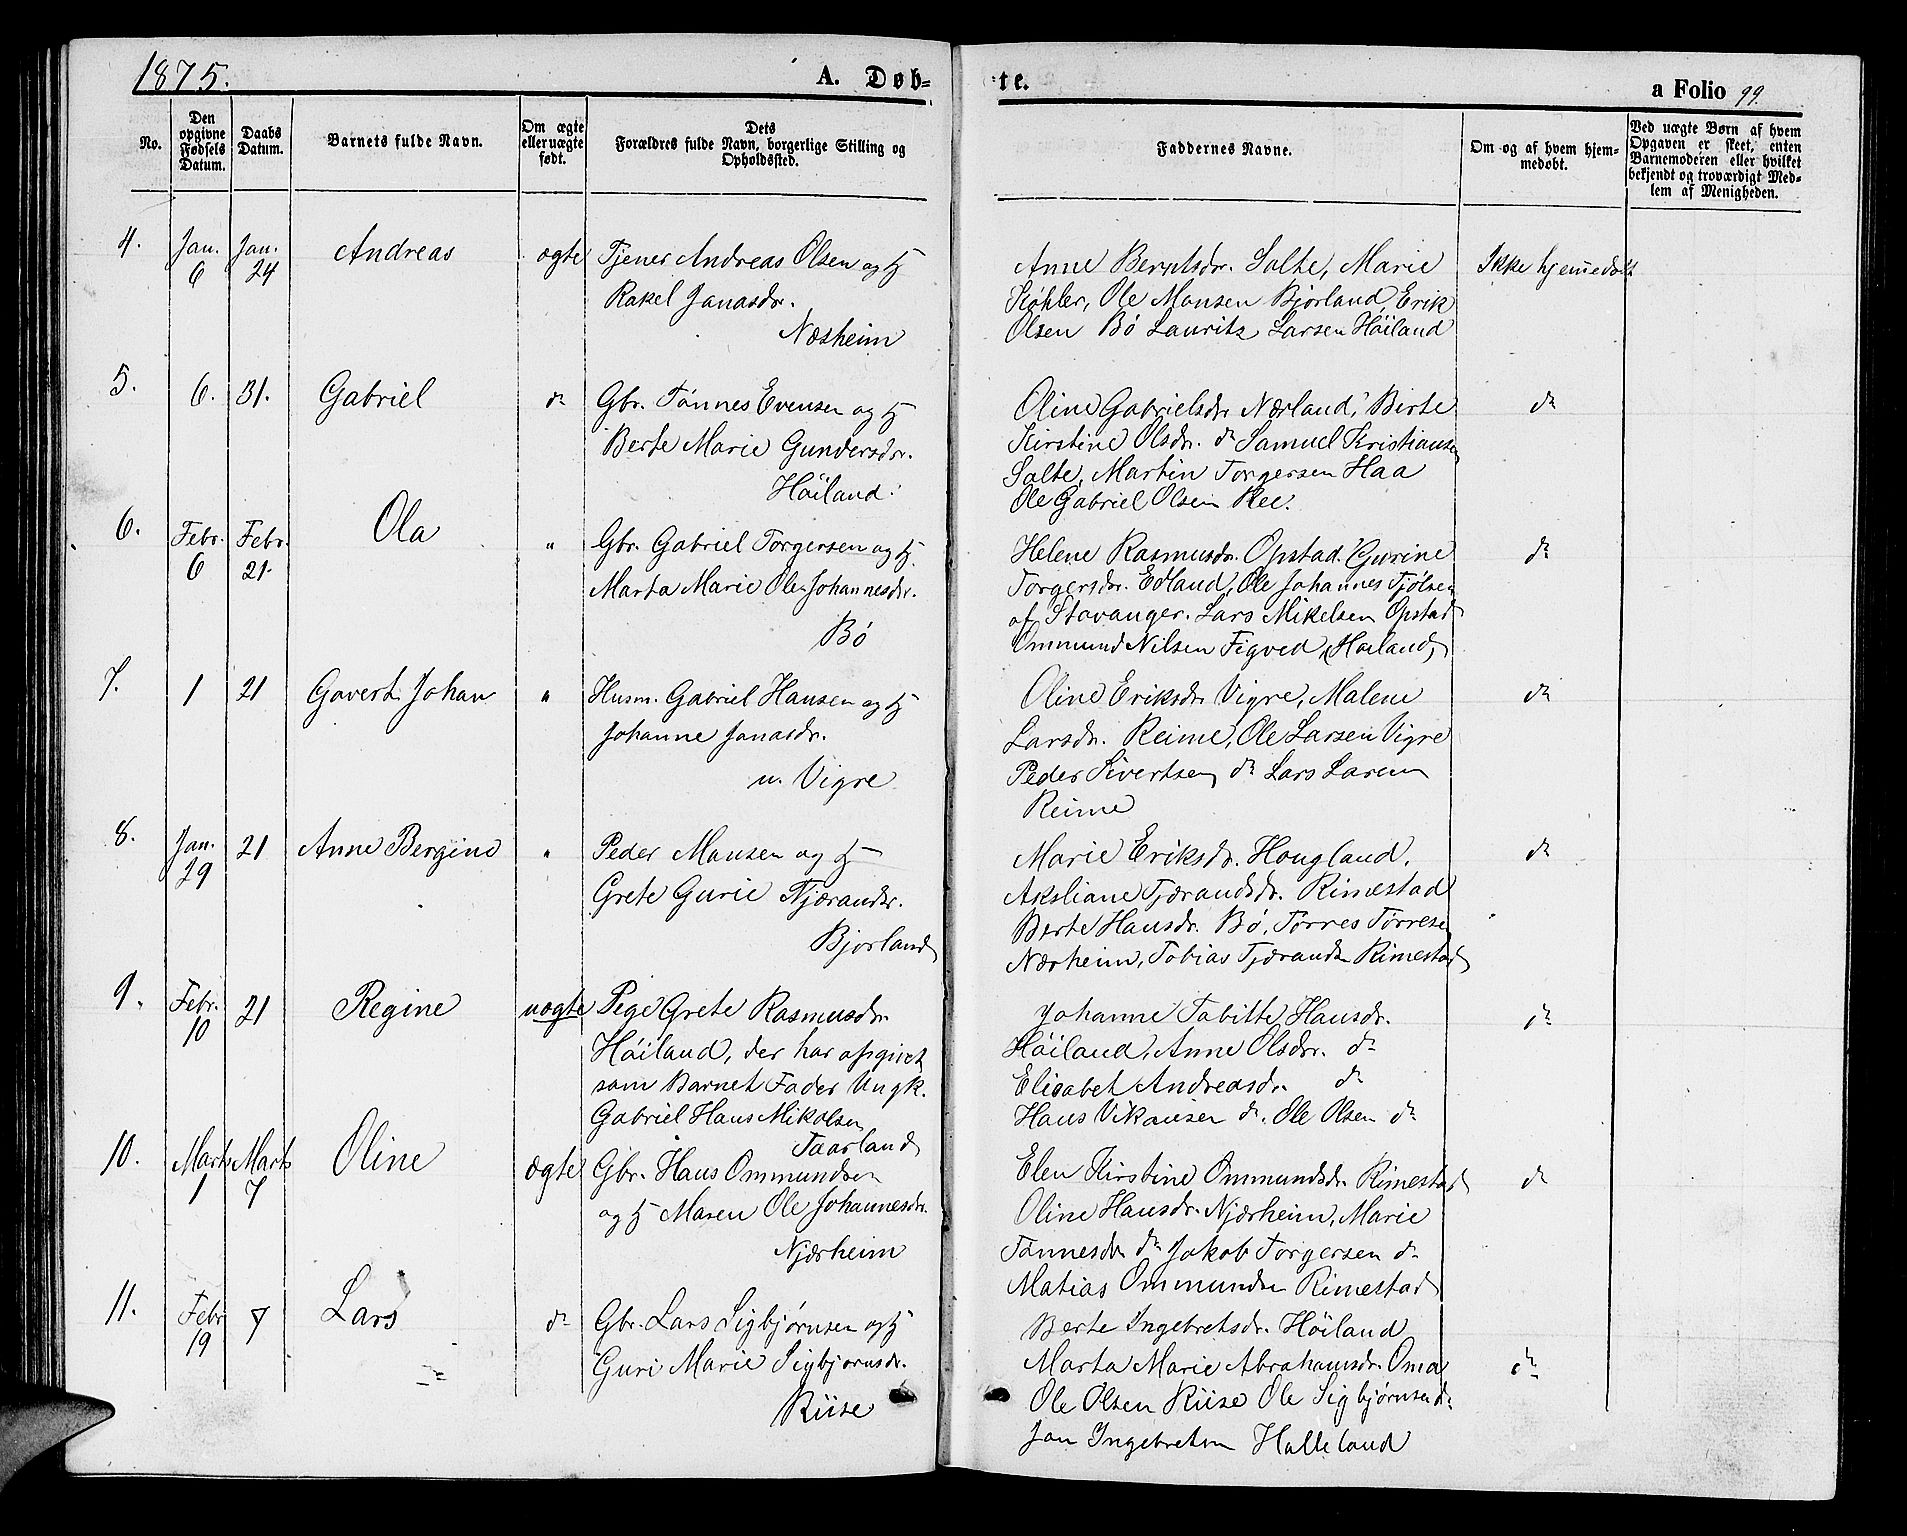 1875.
A. Døb-
te.
a Folio 99.
No.
Den opgivne Fødsels Datum.
Daabs Datum.
Barnets fulde Navn.
Om ægte eller uægte født.
Dets Forældres fulde Navn, borgerlige Stilling og Opholdssted.
Faddernes Navne.
Om og af hvem hjem-
medøbt.
Ved uægte Børn af hvem
Opgaven er skeet, enten
Barnemoderen eller hvilket
bekjendt og troværdigt Med-
lem af Menigheden.
4. Jan. 6 Jan. 24 Andreas ægte Tjener Andreas Olsen og H
Rakel Janasdr.
Næsheim
Anne Berntsdr. Salte, Marie
Köhler, Ole Monsen Bjorland, Erik
Olsen Bö Lauritz Larsen Höiland
Ikke hjemmedøbt
5. 6. 31. Gabriel do Gbr. Tönnes Evensen og H
Berte Marie Gundersdr.
Höiland.
Oline Gabrielsdr. Nærland, Birte
Kirstine Olsdr. do Samuel Kristiansen
Salte, Martin Torgersen Haa
Ole Gabriel Olsen Ree.
do
6. Febr. 6 Febr. 21. Ola " Gbr. Gabriel Torgersen og H
Marta Marie Ole Johannesdr.
Bö
Helene Rasmusdr. Opstad. Gurine
Torgersdr. Edland, Ole Johannes Tjölsen
af Stavanger. Lars Mikelsen Opstad
Ommund Nilsen Figved, (Horland)
do
7. 1 21 Govert Johan " Husm. Gabriel Hansen og H
Johanne Janasdr.
u. Vigre
Oline Eriksdr. Vigre, Malene
Larsdr. Reime, Ole Larsen Vigre
Peder Sivertsen do Lars Larsen
Reime
do
8. Jan. 29 21 Anne Bergine " Peder Monsen og H
Grete Gurie Tjærandsr.
Bjorland
Marie Eriksdr. Hougland.
Aksliane Tjærandsdr. Rimestad
Berte Hansdr. Bö, Törres Törresen
Nærheim, Tobias Tjærands Rimestad
do
9. Febr. 10 21 Regine uægte Pige Grete Rasmusdr.
Höiland, der har opgivet
som Barnet Fader Ungk.
Gabriel Hans Mikalsen
Taarland
Johanne Tabitte Hansdr.
Höiland, Anne Olsdr. do
Elisabet Andreasdr. do
Hans Vikansen do. Ole Olsen do
do
10. Marts 1 Marts 7 Oline ægte Gbr. Hans Ommundsen
og H Maren Ole Johannesdr.
Njærheim
Elen Kirstine Ommundsdr. Rimestad
Oline Hansdr. Njærheim, Marie
Tönnesdr do Jakob Torgersen do
Matias Ommundsen Rimestad
do
11. Febr 19 7 Lars do Gbr. Lars Sigbjörnsen og H
Guri Marie Sigbjornsdr.
Riise
Berte Ingebretsdr. Höiland
Marta Marie Abrahamsdr. Oma
Ole Olsen Riise Ole Sigbjörnsen do
Jan Ingebretsen Halleland
do